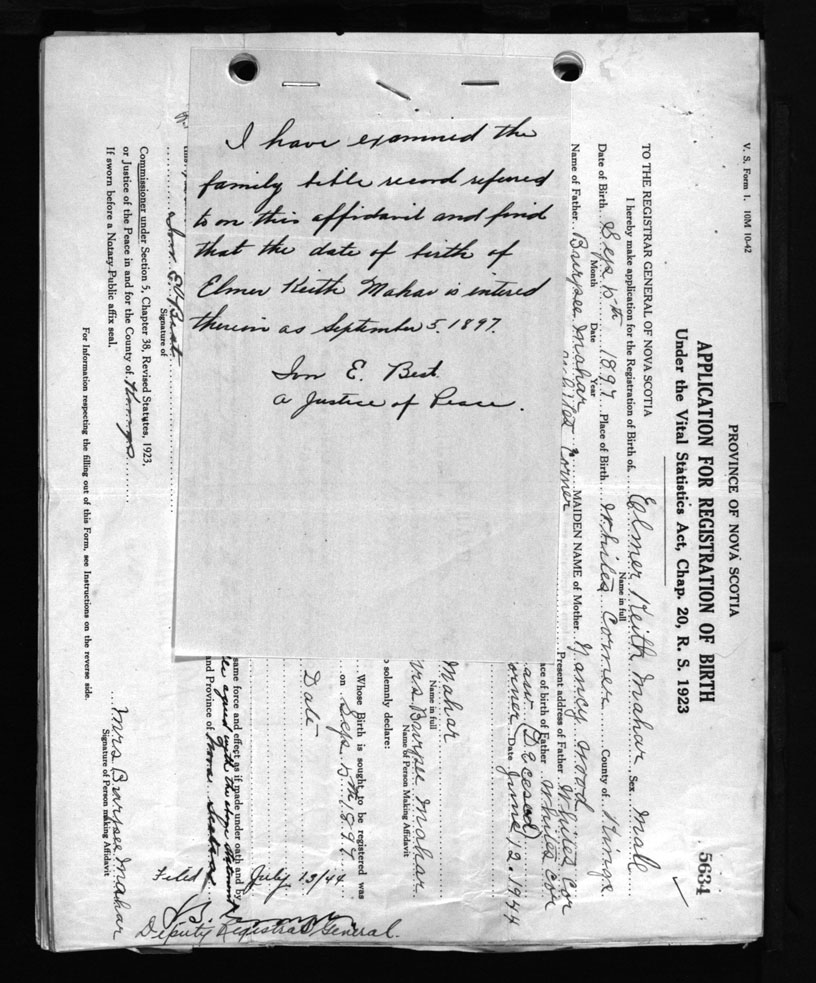 I have examined the
family bible record referred
to on this affidavit and find
that the date of birth of
Elmer Keith Mahar is entered
therein as September 5. 1897.
E. Best
a Justice of Peace.
V. S. Form 1. 10M 10-42
PROVINCE OF NOVA SCOTIA
APPLICATION FOR REGISTRATION OF BIRTH
Under the Vital Statistics Act, Chap. 20, R. S. 1923
5634
TO THE REGISTRAR GENERAL OF NOVA SCOTIA
I hereby make application for the Registration of Birth of Elmer Keith Mahar Sex Male
Name in full
Date of Birth Sep 5th 1897 Place of Birth Whites Corner County of Kings
Month Date Year
Name of Father Burpee Mahar MAIDEN NAME of Mother Nancy Wood
Whites Corner
Present address of Father Whites Cor
ace of birth of Father Whites Cor
Deceased
orner Date June 12. 1944
Mahar
Name in full
Mrs Burpee Mahar
Name of Person Making Affidavit
solemnly declare:
Whose Birth is sought to be registered was
on Sep 5th 1897
Date
same force and effect as if made under oath and by
and Province of Nova Scotia
E. Best
Signature of
Commissioner under Section 5, Chapter 38, Revised Statutes, 1923,
or Justice of the Peace in and for the County of Kings
If sworn before a Notary-Public affix seal.
Mrs Burpee Mahar
Signature of Person making Affidavit
For Information respecting the filling out of this Form, see Instructions on the reverse side.
Filed July 13/44
Deputy Registrar General.